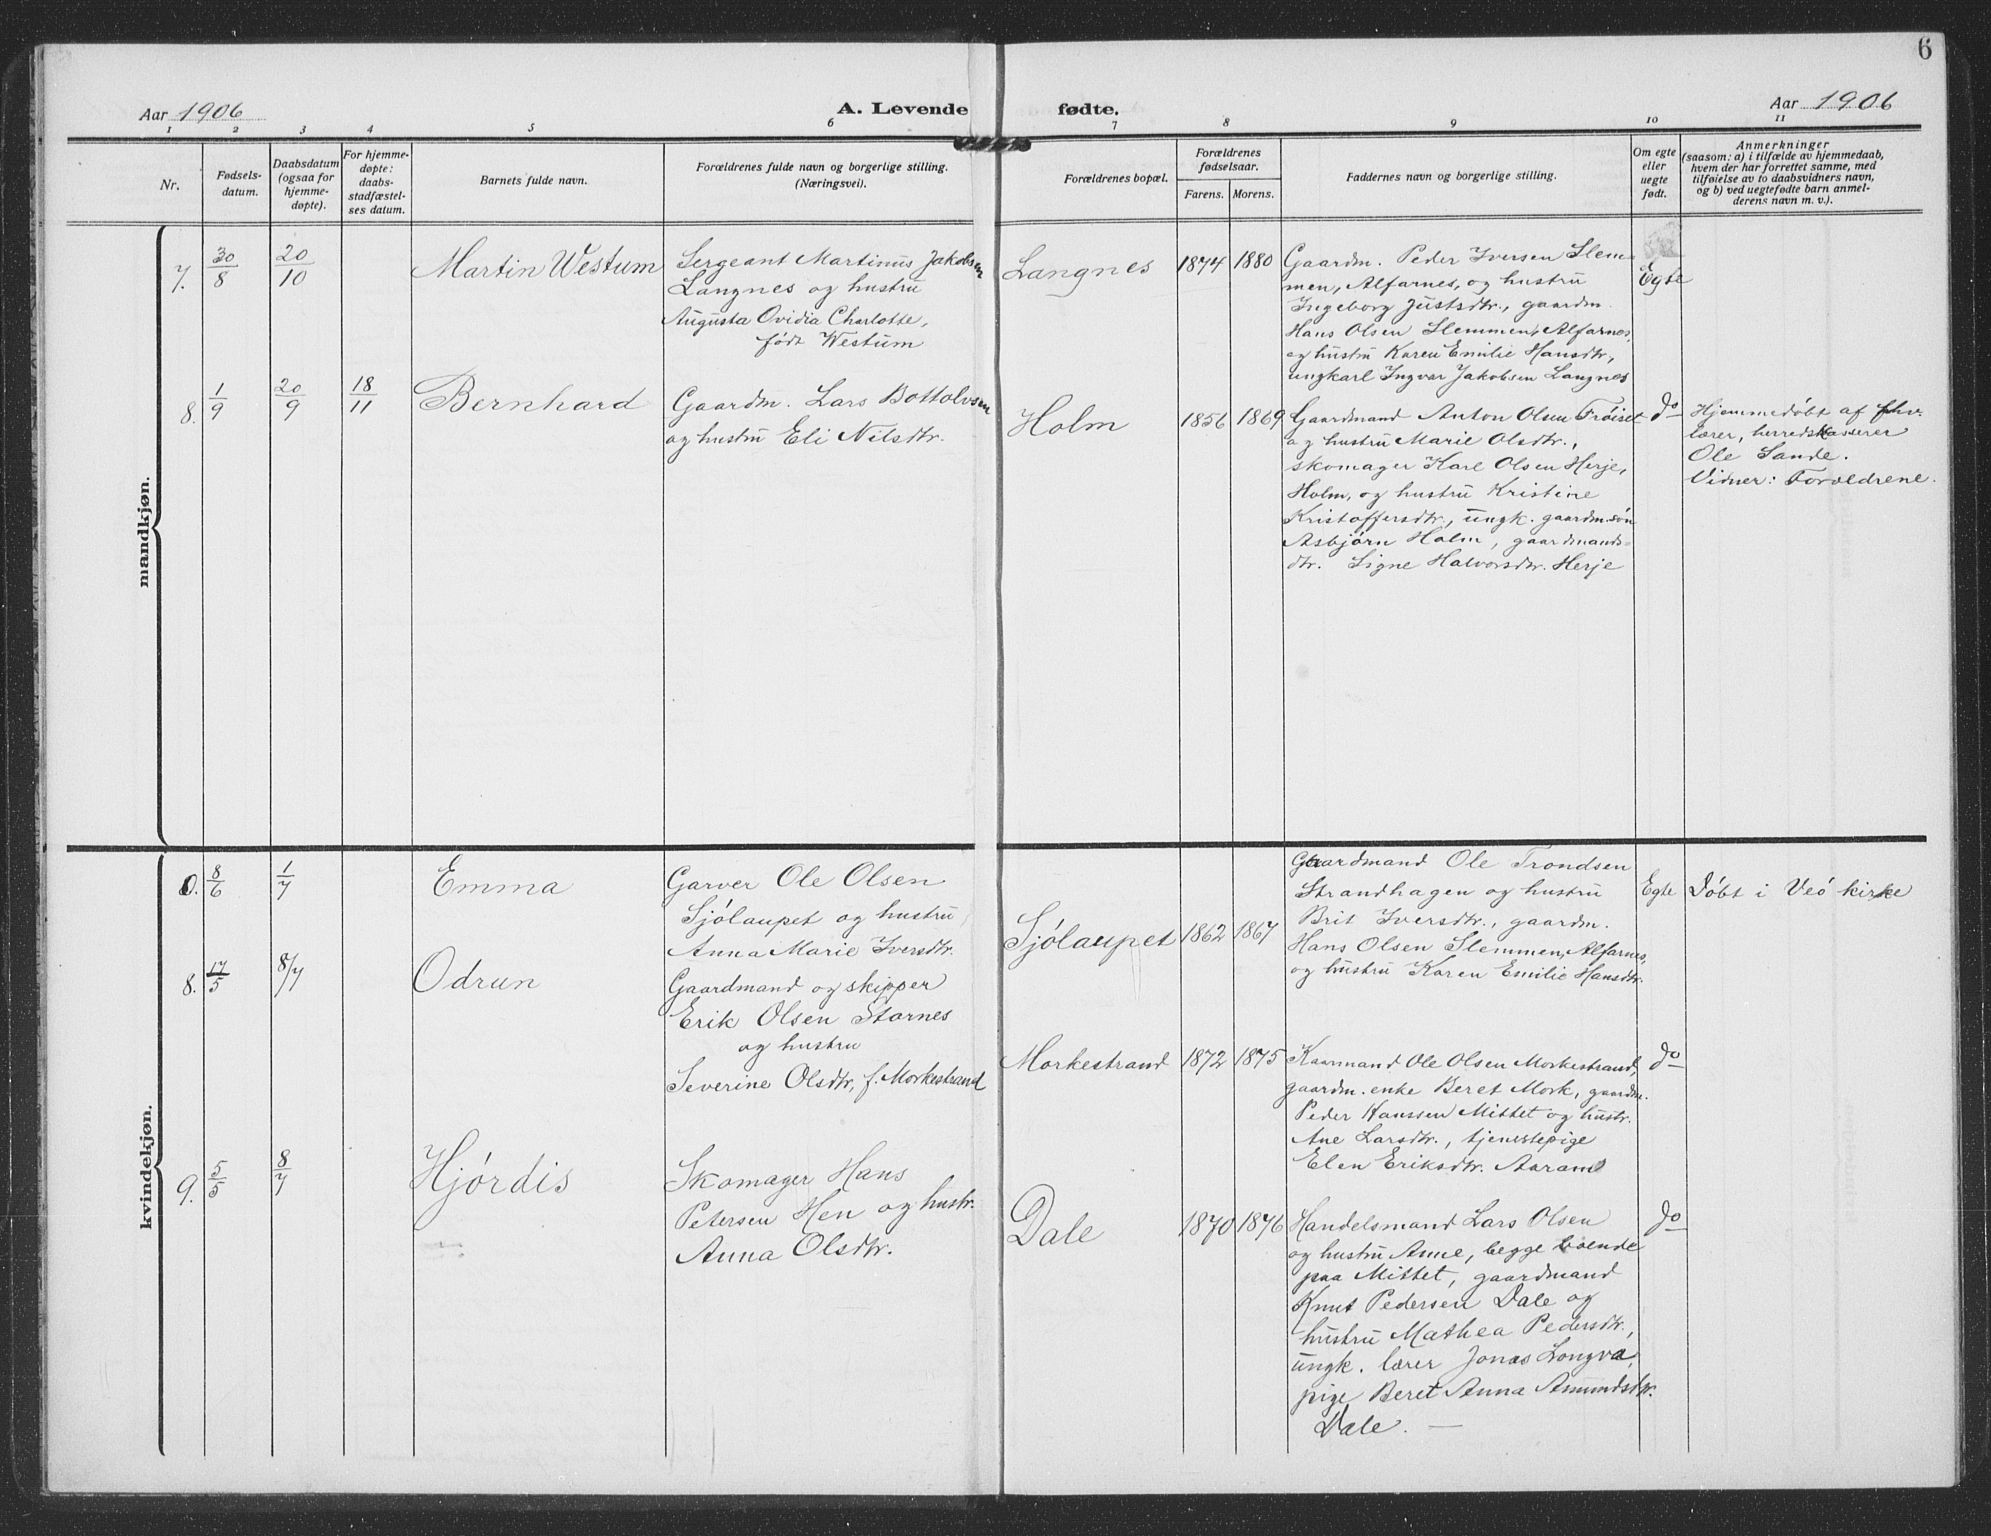 6
Aar 1906
A. Levende fødte.
Aar 1906
1 2 3 4 5 6 7 8 9 10 11
Nr.
Fødsels-
datum.
Daabsdatum
(ogsaa for
hjemme-
døpte).
For hjemme-
døpte:
daabs-
stadfæstel-
ses datum.
Barnets fulde navn.
Forældrenes fulde navn og borgerlige stilling.
(Næringsvei).
Forældrenes bopæl.
Forældrenes
fødselsaar.
Farens. Morens.
Faddernes navn og borgerlige stilling.
Om egte
eller
uegte
født.
Anmerkninger
(saasom: a) i tilfælde av hjemmedaab,
hvem der har forrettet samme, med
tilføielse av to daabsvidners navn,
og b) ved uegtefødte barn anmel-
derens navn m. v.).
mandkjøn.
7. 30/8 20/10 Martin Westum
Sergeant Martinus Jakobsen
Langnes og hustru
Augusta Ovidia Charlotte,
født Westum
Langnes 1874 1880
Gaardm. Peder Iversen Slem-
men, Alfarnes, og hustru
Ingeborg Justsdtr., gaardm.
Hans Olsen Slemmen, Alfarnes,
og hustru Karen Emilie Hansdtr,
ungkarl Ingvar Jakobsen Langnes
Egte
8. 1/9 20/9 18/11 Bernhard
Gaardm. Lars Bottolvsen
og hustru Eli Nilsdtr.
Holm 1856 1869
Gaardmand Anton Olsen Frøiset
og hustru Marie Olsdtr.,
skomager Karl Olsen Herje,
Holm, og hustru Kristine
Kristoffersdtr., ungk. gaardm.søn
Asbjørn Holm, gaardmands-
dtr. Signe Halvorsdtr. Herje
do
Hjemmedøbt af fhv.
lærer, herredskasserer
Ole Sande.
Vidner: Forældrene.
kvindekjøn.
8/6 1/7 Emma
Garver Ole Olsen
Sjølaupet og hustru
Anna Marie Iversdtr.
Sjølaupet 1862 1867
Gaardmand Ole Trondsen
Strandhagen og hustru
Brit Iversdtr., gaardm.
Hans Olsen Slemmen, Alfarnes,
og hustru Karen Emilie Hansdtr.
Egte
Døbt i Veø kirke
8. 17/5 8/7 Odrun
Gaardmand og skipper
Erik Olsen Stornes
og hustru
Severine Olsdtr, f. Morkestrand
Morkestrand 1872 1875
Kaarmand Ole Olsen Morkestrand,
gaardm. enke Beret Mork, gaardm.
Peder Hanssen Mittet og hustr.
Ane Larsdtr., tjenestepige
Elen Eriksdtr. Aaram
do
9. 5/5 8/7 Hjørdis
Skomager Hans
Petersen Hen og hustr.
Anna Olsdtr.
Dale 1870 1876
Handelsmand Lars Olsen
og hustru Anne, begge boende
paa Mittet, gaardmand
Knut Pedersen Dale og
hustru Mathea Pedersdtr.,
ungk. lærer Jonas Longva,
pige Beret Anna Amundsdtr.
Dale. —
do